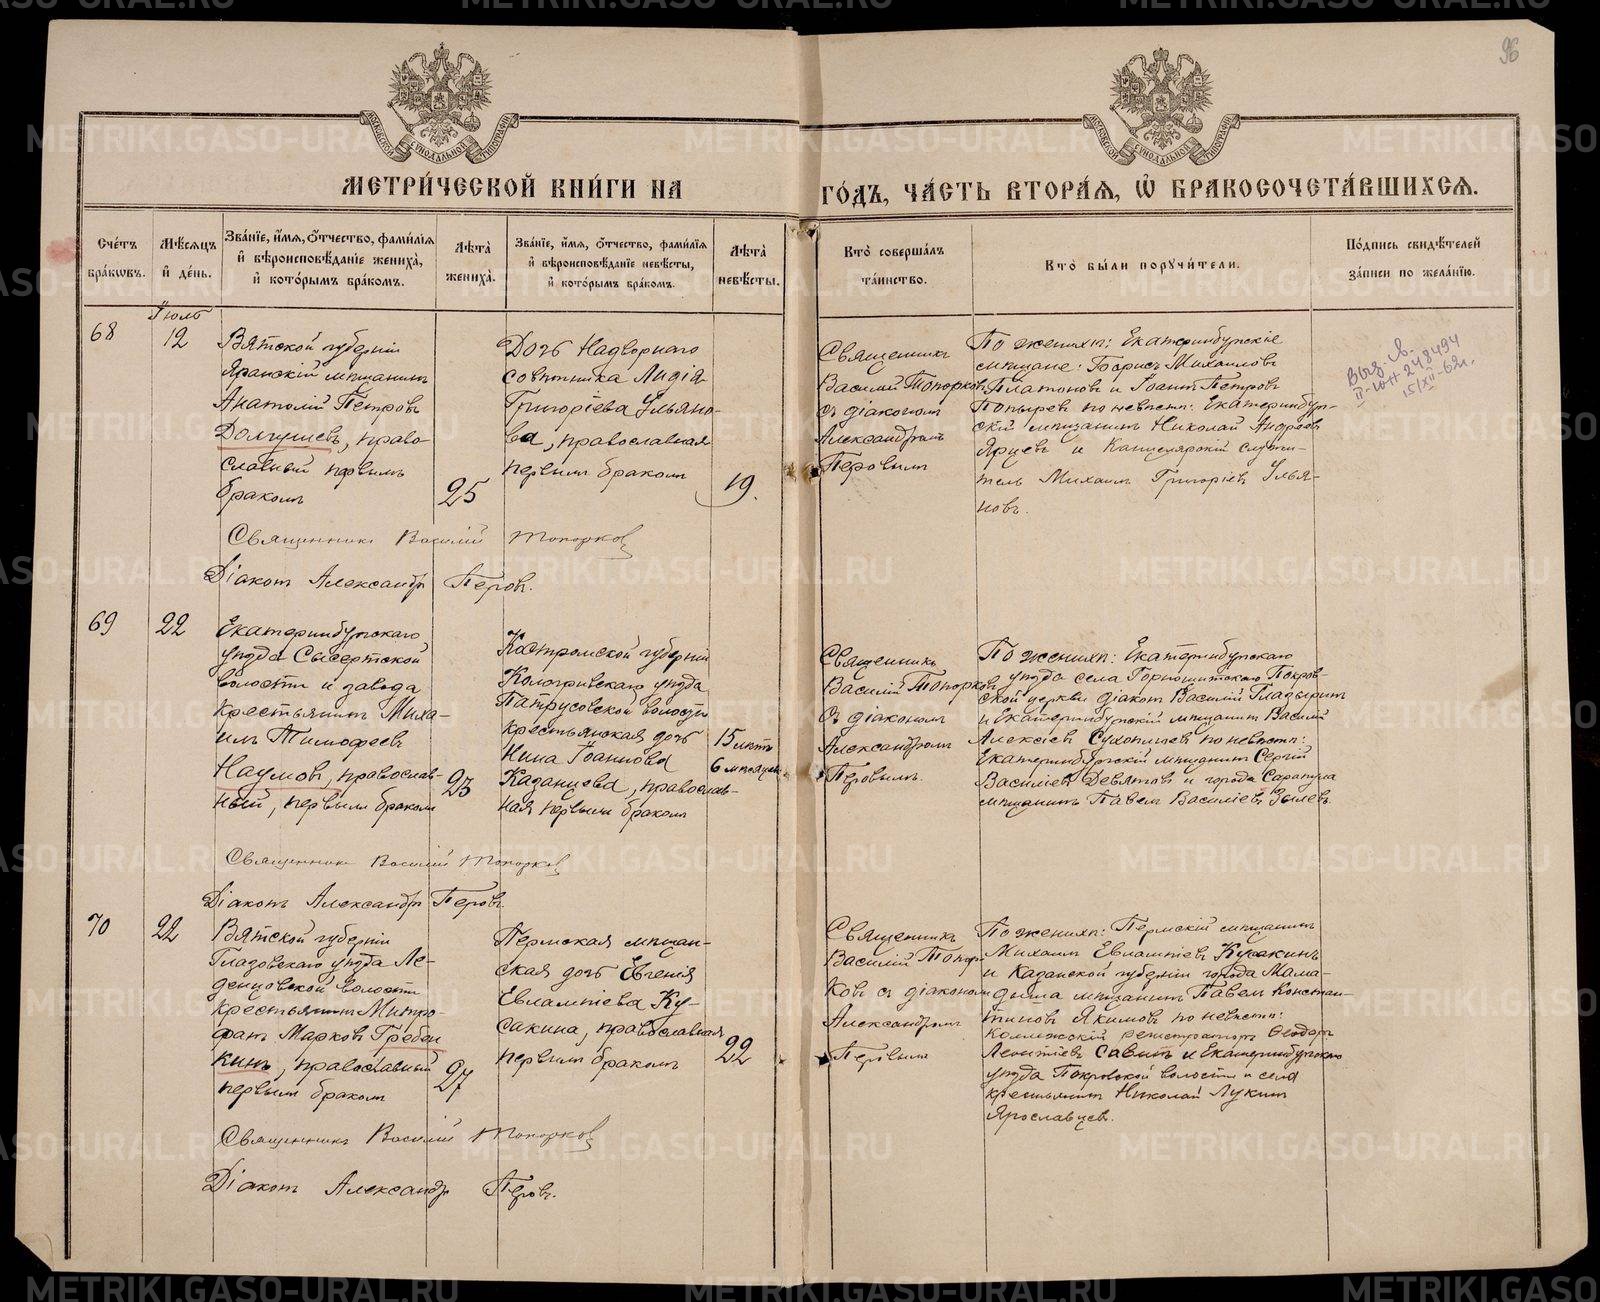 96
МЕТРИ́ЧЕСКОЙ КНИ́ГИ НА ГО́ДЪ, ЧА́СТЬ ВТОРА́Я, Ѽ БРАКОСОЧЕТА́ВШИХСЯ.
Сче́тъ бра́кѡвъ.
Мѣ́сѧцъ и҆ де́нь.
Зва́нїе, и҆́мѧ, ѻ҆́тчество, фами́лїѧ и҆ вѣроисповѣ́данїе жениха̀, и҆ кото́рымъ бра́комъ.
Лѣ́та жениха̀.
Зва́нїе, и҆́мѧ, ѻ҆́тчество, фами́лїѧ и҆ вѣроисповѣ́данїе невѣ́сты, и҆ кото́рымъ бра́комъ.
Лѣ́та невѣ́сты.
Кто̀ соверша́лъ та́инство.
Кто̀ бы́ли поручи́тели.
По́дпись свидѣ́телей за́писи по жела́нїю.
Іюль
68
12
Вятской губерніи
Яранскій мѣщанинъ
Анатолій Петровъ
Долгушевъ, право-
славный первымъ
бракомъ
25
Дочь Надворнаго
совѣтника Лидія
Григоріева Ульяно-
ва, православная
первымъ бракомъ
19.
Священникъ
Василій Топорковъ
съ діакономъ
Александромъ
Перовымъ
По женихѣ: Екатеринбургскіе
мѣщане: Борисъ Михаиловъ
Платоновъ и Іоаннъ Петровъ
Попыревъ по невѣстѣ: Екатеринбург-
скій мѣщанинъ Николай Андреевъ
Ярцевъ и Канцелярскій служи-
тель Михаилъ Григоріевъ Улья-
новъ.
248494
15/XII-62г.
Священникъ Василій Топорковъ
Діаконъ Александръ Перовъ.
69
22
Екатеринбургскаго
уѣзда Сысертской
волости и завода
крестьянинъ Миха-
илъ Тимофеевъ
Наумовъ, православ-
ный, первымъ бракомъ
23
Костромской губерніи
Кологривскаго уѣзда
Патрусовской волости
крестьянская дочь
Нина Іоаннова
Казанцева, православ-
ная первымъ бракомъ
15 лѣтъ
6 мѣсяцевъ
Священникъ
Василій Топорковъ
съ діакономъ
Александромъ
Перовымъ.
По женихѣ: Екатеринбургскаго
уѣзда села Горнощитскаго Покров-
ской церкви діаконъ Василій Гладыринъ
и Екатеринбургскій мѣщанинъ Василій
Алексіевъ Сухопляевъ по невѣстѣ:
Екатеринбургскій мѣщанинъ Сергій
Василіевъ Девятовъ и города Сарапула
мѣщанинъ Павелъ Василіевъ Зылевъ.
Священникъ Василій Топорковъ
Діаконъ Александръ Перовъ.
70
22
Вятской губерніи
Глазовскаго уѣзда Ле-
денцовской волости
крестьянинъ Митро-
фанъ Марковъ Гребен-
кинъ, православный
первымъ бракомъ
27
Пермская мѣщан-
ская дочь Евгенія
Евлампіева Ку-
сакина, православная
первымъ бракомъ
22
Священникъ
Василій Топор-
ковъ съ діакономъ
Александромъ
Перовымъ
По женихѣ: Пермскій мѣщанинъ
Михаилъ Евлампіевъ Кусакинъ
и Казанской губерніи города Мама-
дыша мѣщанинъ Павелъ Констан-
тиновъ Якимовъ по невѣстѣ:
Коллежскій регистраторъ Ѳеодоръ
Леонтіевъ Савинъ и Екатеринбургскаго
уѣзда Покровской волости и села
крестьянинъ Николай Лукинъ
Ярославцевъ.
Священникъ Василій Топорковъ
Діаконъ Александръ Перовъ.